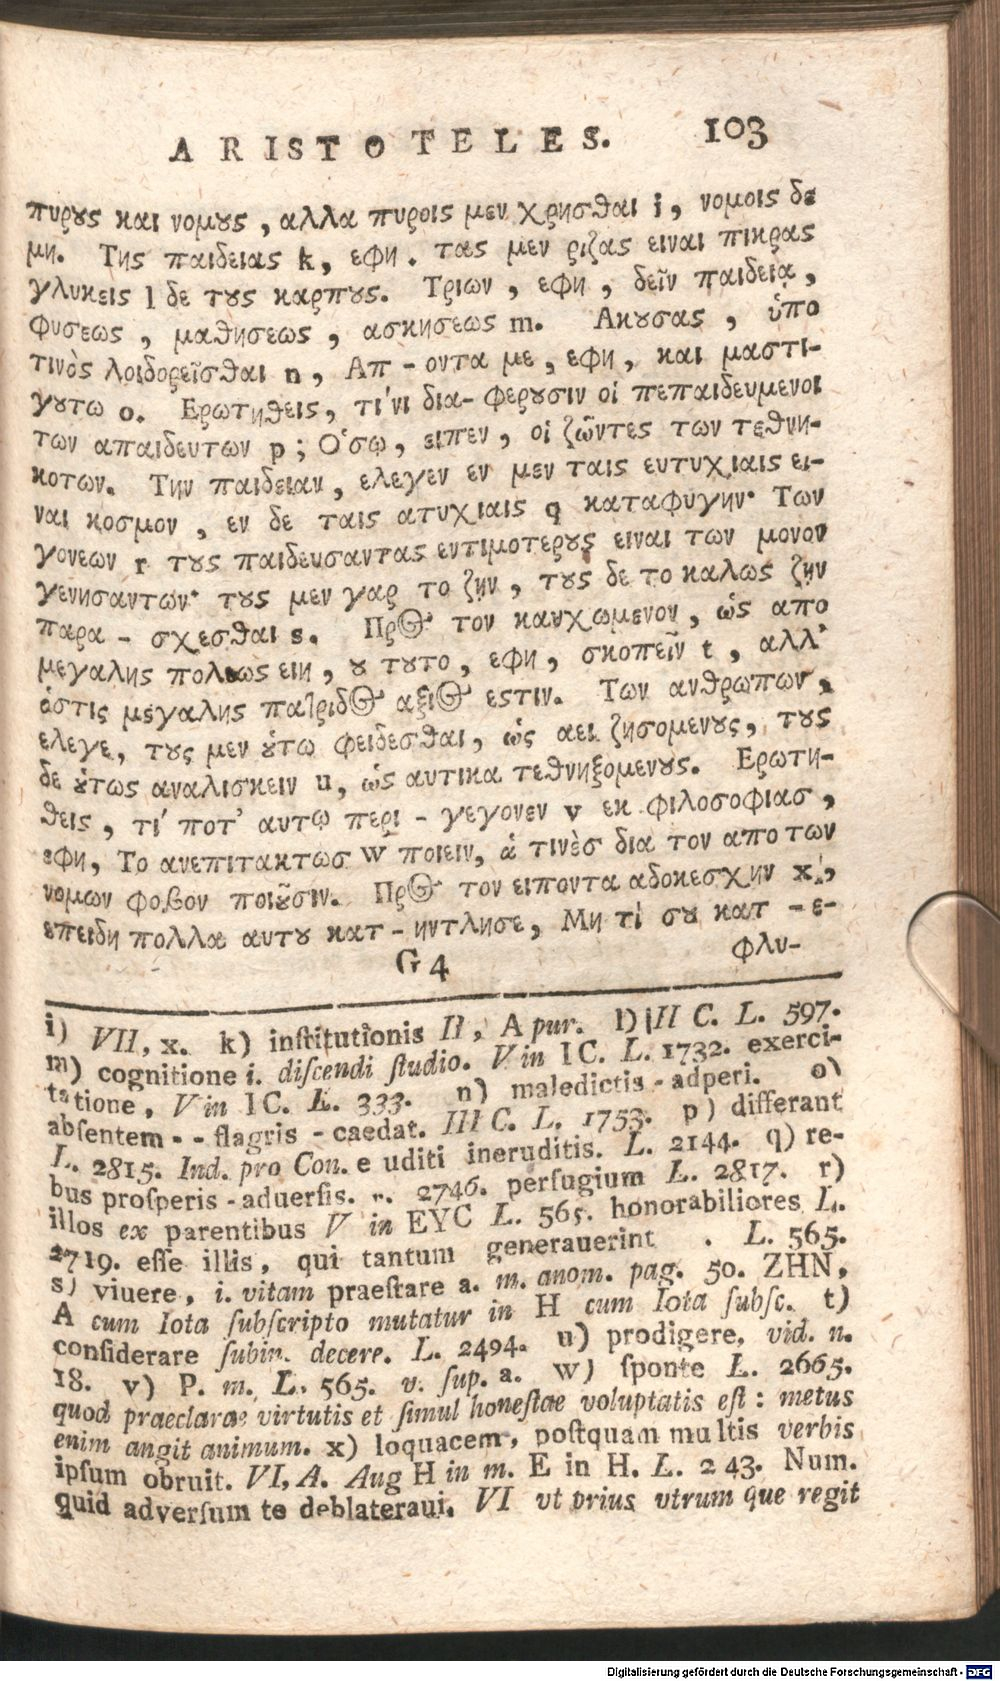 ARISTOTELES. 103
πυρȣς και νομȣς, αλλα πυροις μεν χρησθαι i, νομοις δε
μη. Της παιδειας k, εφη. τας μεν ριζας ειναι πικρας
γλυκεις l δε τȣς καρπȣς. Τριων, εφη, δεῖν παιδείᾳ,
φυσεως, μαθησεως, ασκησεως m. Ακȣσας, ὑπο
τινὸς λοιδορεῖσθαι n, Απ-οντα με, εφη, και μαστι-
γȣτω o. Ερωτηθεις, τίνι δια-φερȣσιν οἱ πεπαιδευμενοι
των απαιδευτων p; Ὁσῳ, ειπεν, οἱ ζῶντες των τεθνη-
κοτων. Την παιδειαν, ελεγεν εν μεν ταις ευτυχιαις ει-
ναι κοσμον, εν δε ταις ατυχιαις q καταφυγην· Των
γονεων r τȣς παιδευσαντας εντιμοτερȣς ειναι των μονον
γενησαντων· τȣς μεν γαρ το ζῃν, τȣς δε το καλως ζῃν
παρα-σχεσθαι s. Προς τον καυχωμενον, ὡς απο
μεγαλης πολεως ειη, ȣ τȣτο, εφη, σκοπεῖν t, αλλ᾽
ὁστις μεγαλης πατριδος αξιος εστιν. Των ανθρωπων,
ελεγε, τȣς μεν ȣ̔τω φειδεσθαι, ὡς αει ζησομενȣς, τȣς
δε ȣ̔τως αναλισκειν u, ὡς αυτικα τεθνηξομενȣς. Ερωτη-
θεις, τί ποτ᾽ αυτῳ περι-γεγονεν v εκ φιλοσοφιας,
εφη, Το ανεπιτακτως w ποιειν, ἁ τινὲς δια τον απο των
νομων φοβον ποιȣ͂σιν. Προς τον ειποντα αδολεσχην x,
επειδη πολλα αυτȣ κατ-ηντλησε, Μη τί σȣ κατ-ε-
G 4 φλυ-
i) VII, x. k) institutionis II, A pur. l) II C. L. 597.
m) cognitione i. discendi studio. V in I C. L. 1732. exerci-
tatione, V in I C. L. 333. n) maledictis-adperi. o)
absentem--flagris-caedat. III C. L. 1753. p) differant
L. 2815. Ind. pro Con. e uditi ineruditis. L. 2144. q) re-
bus prosperis-aduersis. n. 2746. perfugium L. 2817. r)
illos ex parentibus V in EYC L. 565. honorabiliores L.
2719. esse illis, qui tantum generauerint . L. 565.
s) viuere, i. vitam praestare a. m. anom. pag. 50. ZHN,
A cum Iota subscripto mutatur in H cum Iota subsc. t)
considerare subin. decere. L. 2494. u) prodigere, vid. n.
18. v) P. m. L. 565. v. sup. a. w) sponte L. 2665.
quod praeclarae virtutis et simul honestae voluptatis est: metus
enim angit animum. x) loquacem, postquam multis verbis
ipsum obruit. VI, A. Aug H in m. E in H. L. 243. Num.
quid adversum te deblateraui. VI vt prius vtrum que regit
Digitalisierung gefördert durch die Deutsche Forschungsgemeinschaft - DFG